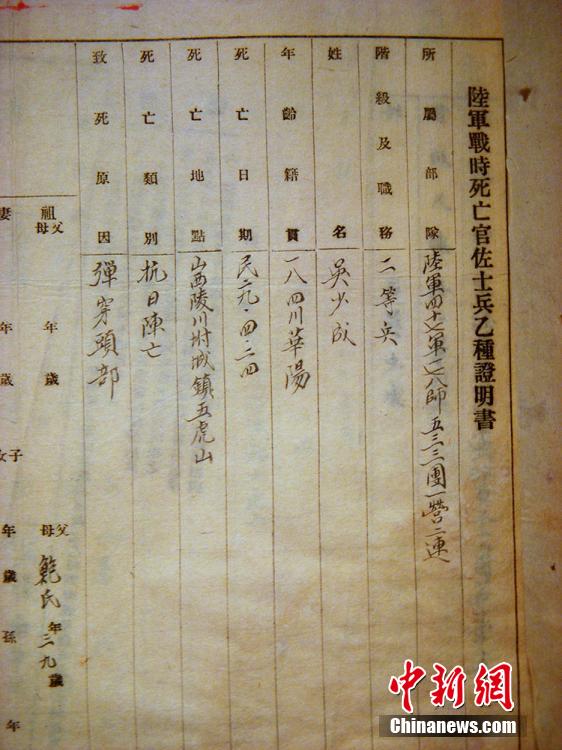 陸軍戰時死亡官佐士兵乙種證明書
所屬部隊 陸軍四十七軍一七八師五三三團一營二連
階級及職務 二等兵
姓名 吳少成
年齡籍貫 一八 四川華陽
死亡日期 民二九·四·二四
死亡地點 山西陵川附城鎮五虎山
死亡類別 抗日陣亡
致死原因 彈穿頭部
祖父母 年 歲 父母 氏 年三九歲
妻 年 歲 子女 年 歲 孫 年
中新網
Chinanews.com